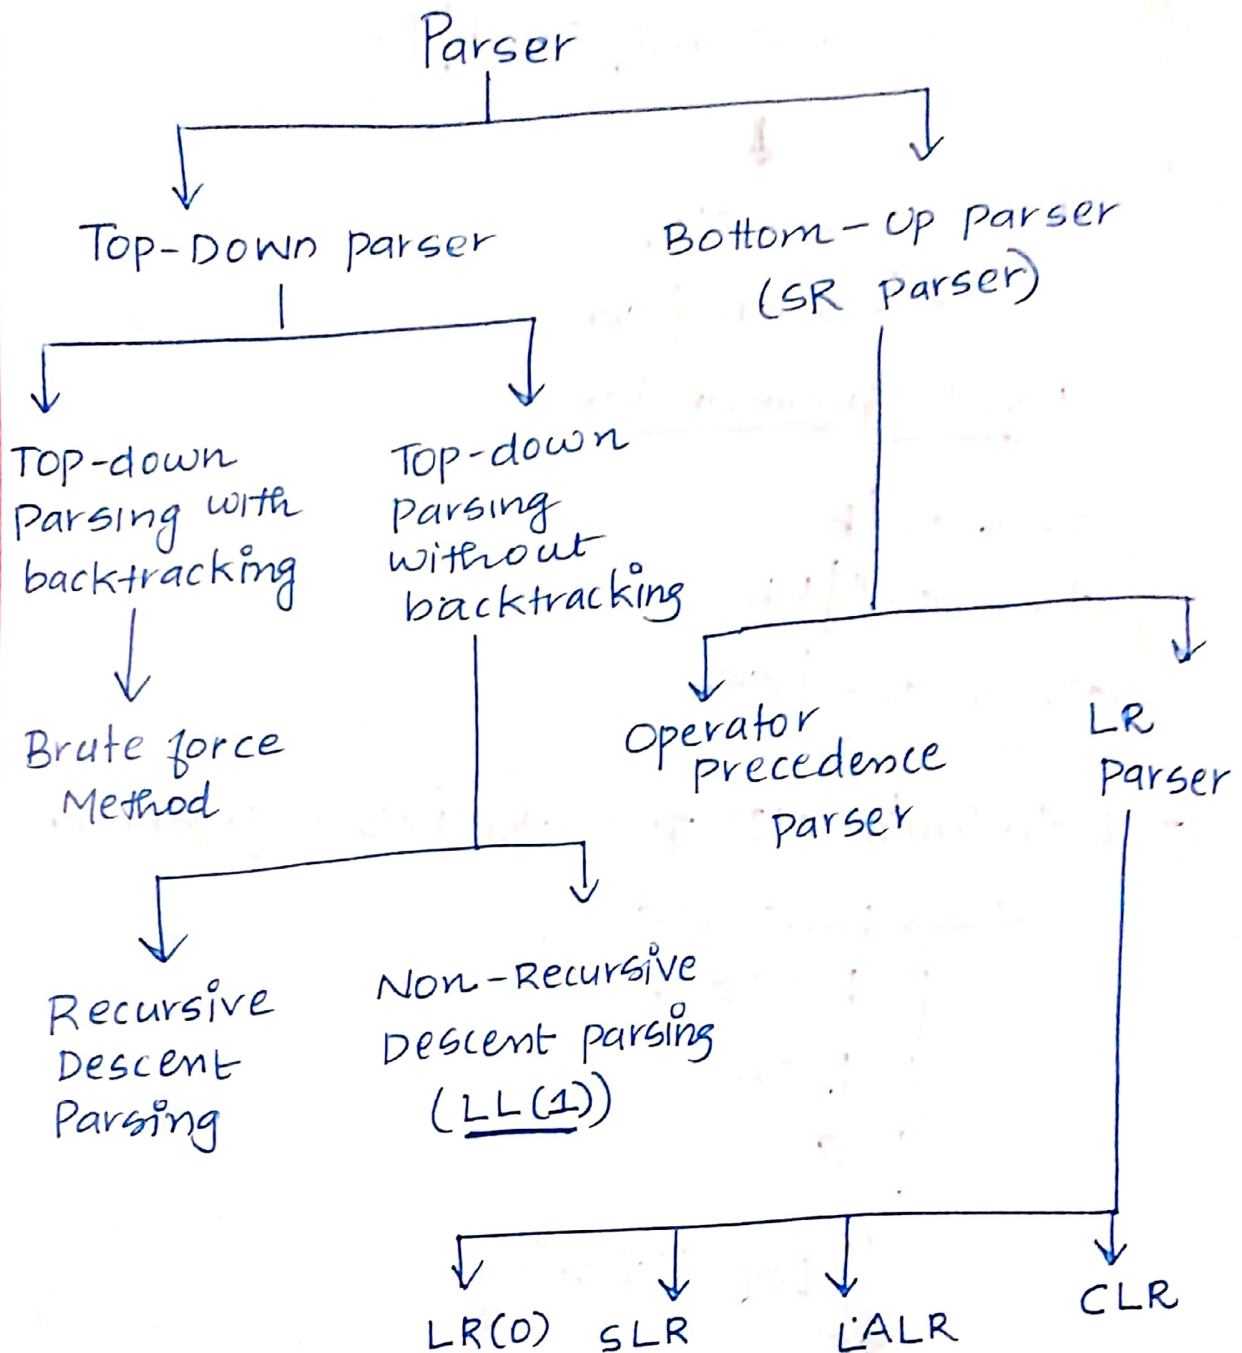 Parser
Top-Down parser
Bottom-Up parser
(SR parser)
Top-down
Parsing with
backtracking
Top-down
parsing
without
backtracking
Brute force
Method
Operator
precedence
parser
LR
parser
Recursive
Descent
Parsing
Non-Recursive
Descent parsing
(LL(1))
LR(0)
SLR
LALR
CLR